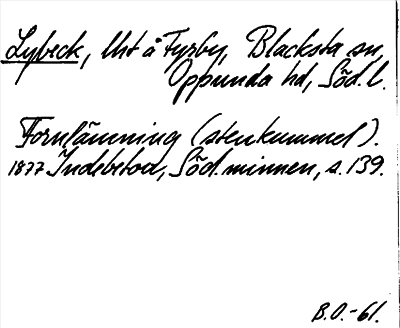 Lybeck, Uht å Fyrby, Blacksta sn,
Oppunda hd, Söd. l.
Fornlämning (stenkummel).
1877 Indebetou, Söd. minnen, s. 139.
B.O.-61.